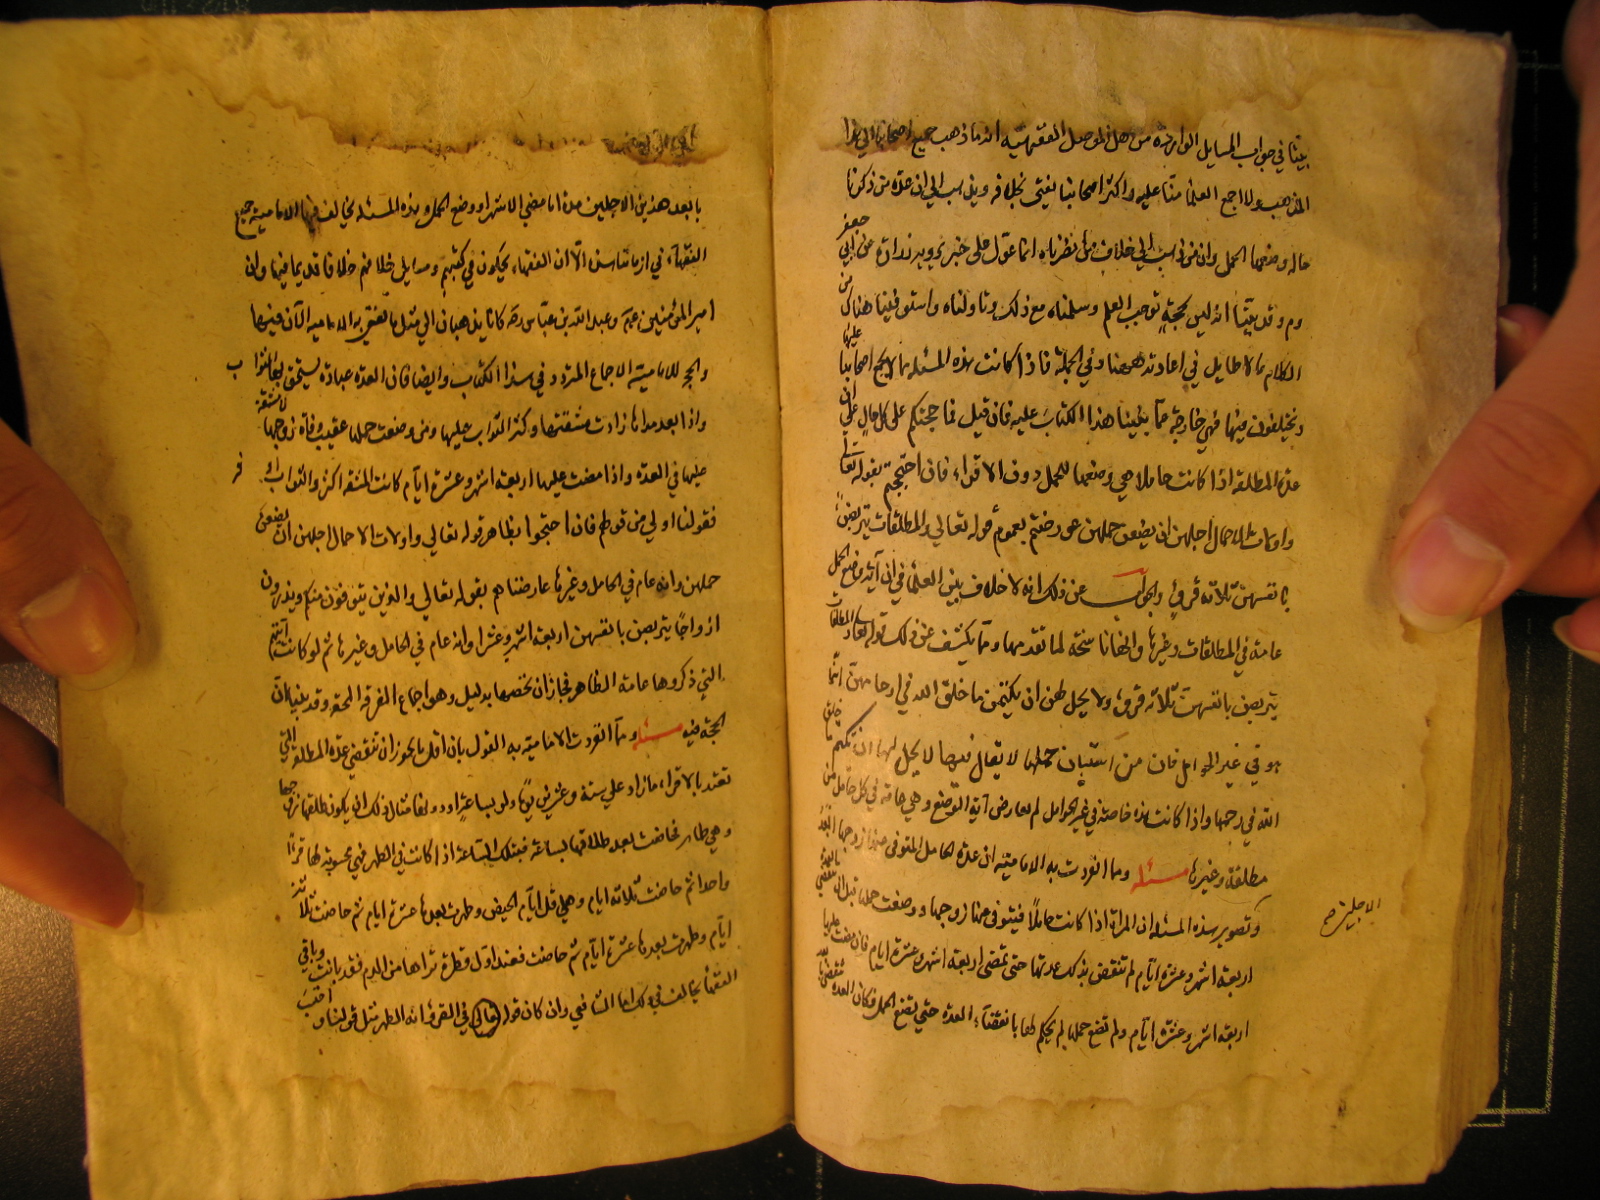 بينا في جواب المسايل الواردة من اهل الموصل الفقهية انه ما ذهب جميع اصحابنا الي هذا
المذهب ولا اجمع العلما منا عليه واكثر اصحابنا يفتي بخلافه ويذهب الي ان عدة من ذكرنا
حاله وضعها الحمل وان من ذهب الي خلاف من نظرناه انما عول علي خبر يرويه زرارة عن ابي جعفر
وم وقد بينا انه ليس بحجة توجب العلم وسلمناه مع ذلك وتاولناه واستوفينا هناك من
الكلام ما لا طايل في اعادته ههنا وفي الجملة فاذا كانت هذه المسئلة مما لا يجمع اصحابنا عليها
ويختلفون فيها فهي خارجة مما بنينا هذا الكتاب عليه فان قيل فما حجتكم علي كل حال علي ان
عدة المطلقة اذا كانت حاملا هي وضعها للحمل دون الاقراء فان احتججتم بقوله تعالي
واولات الاحمال اجلهن ان يضعن حملهن عورضتم بعموم قوله تعالي والمطلقات يتربصن
بانفسهن ثلاثة قروء والجواب عن ذلك انه لا خلاف بين العلما في ان آية وضع الحمل
عامة في المطلقات وغيرها وانها ناسخة لما تقدمها ومما يكشف عن ذلك قوله تعالي والمطلقات
يتربصن بانفسهن ثلاثة قروء ولا يحل لهن ان يكتمن ما خلق الله في ارحامهن انما
هو في غير الحوامل فان من استبان حملها لا يقال فيها لا يحل لها ان تكتم ما خلق
الله في رحمها واذا كانت هذه خاصة في غير الحوامل لم يعارض آية الوضع وهي عامة في كل حامل من
مطلقة وغيرها مسئلة ومما انفردت به الامامية ان عدة الحامل المتوفي عنها زوجها ابعد
الاجلين
وتصوير هذه المسئلة ان المراة اذا كانت حاملا فيتوفي عنها زوجها ووضعت حملها قبل ان تنقضي
اربعة اشهر وعشرة ايام لم تنقض بذلك عدتها حتي تمضي اربعة اشهر وعشرة ايام فان مضت عليها
اربعة اشهر وعشرة ايام ولم تضع حملها لم يحكم لها بانقضاء العدة حتي تضع الحمل فكان العدة تنقضي
بابعد هذين الاجلين مدة اما مضي الاشهر او وضع الحمل وهذه المسئلة يخالف فيها الامامية جميع
الفقهاء في ازماننا هذه الا ان الفقهاء يحكون في كتبهم ومسايل خلافهم خلافا قديما فيها وان
امير المؤمنين عم وعبد الله بن عباس رحه كانا يذهبان الي مثل ما تفتي به الامامية الآن فيها
والحجة للامامية الاجماع المتردد في هذا الكتاب وايضا فان العدة عبادة يستحق بها الثواب
واذا بعد مداها زادت مشقتها وكثر الثواب عليها ومن وضعت حملها عقيب وفاة زوجها لا مشقة
عليها في العدة واذا مضت عليها اربعة اشهر وعشرة ايام كانت المشقة اكثر والثواب اوفر
فقولنا اولي من قولهم فان احتجوا بظاهر قوله تعالي واولات الاحمال اجلهن ان يضعن
حملهن وانه عام في الحامل وغيرها عارضناهم بقوله تعالي والذين يتوفون منكم ويذرون
ازواجا يتربصن بانفسهن اربعة اشهر وعشرا وانه عام في الحامل وغيرها ثم لو كانت آيتهم
التي ذكروها عامة الظاهر لجاز ان نخصها بدليل وهو اجماع الفرقة المحقة وقد بينا ان
الحجة فيه مسئلة ومما انفردت الامامية به القول بان اقل ما يجوز ان تنقضي عدة المطلقة التي
تعتد بالاقراء ما زاد علي ستة وعشرين يوما ولو بساعة او دونها مثال ذلك ان يكون طلقها زوجها
وهي طاهر فحاضت بعد طلاقها بساعة فتلك الساعة اذا كانت في الطهر فهي محسوبة لها قرءا
واحدا ثم حاضت ثلاثة ايام وهي اقل ايام الحيض وطهرت بعدها عشرة ايام ثم حاضت ثلاثة
ايام وطهرت بعدها عشرة ايام ثم حاضت فعند اول قطرة تراها من الدم فقد بانت وباقي
الفقهاء يخالف في ذلك اما الشافعي وان كان قوله في القرء انه الطهر مثل قولنا و